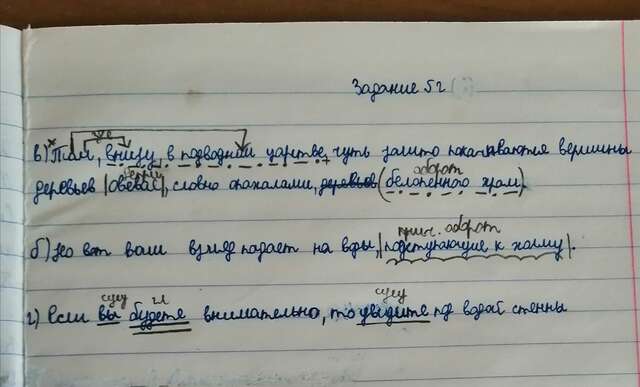 Задание 5 г
в) Там, внизу, в подводном царстве, чуть заметно покачиваются вершины
оборот
деревьев |овевая|, словно опахалами, деревьев (белопенного храм).
прич. оборот
б) Но вот ваш взгляд падает на воды, |подступающие к холму|.
сущ гл сущ
г) Если вы будете внимательно, то увидите под водой стенны